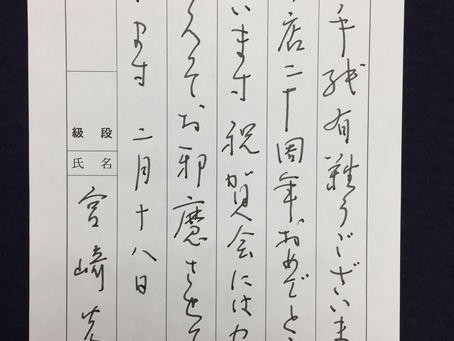 手紙有難うございま
店二十周年おめでと
います 祝賀会には
てお邪魔させて
ます 二月十八日
級 段
氏 名
宮崎